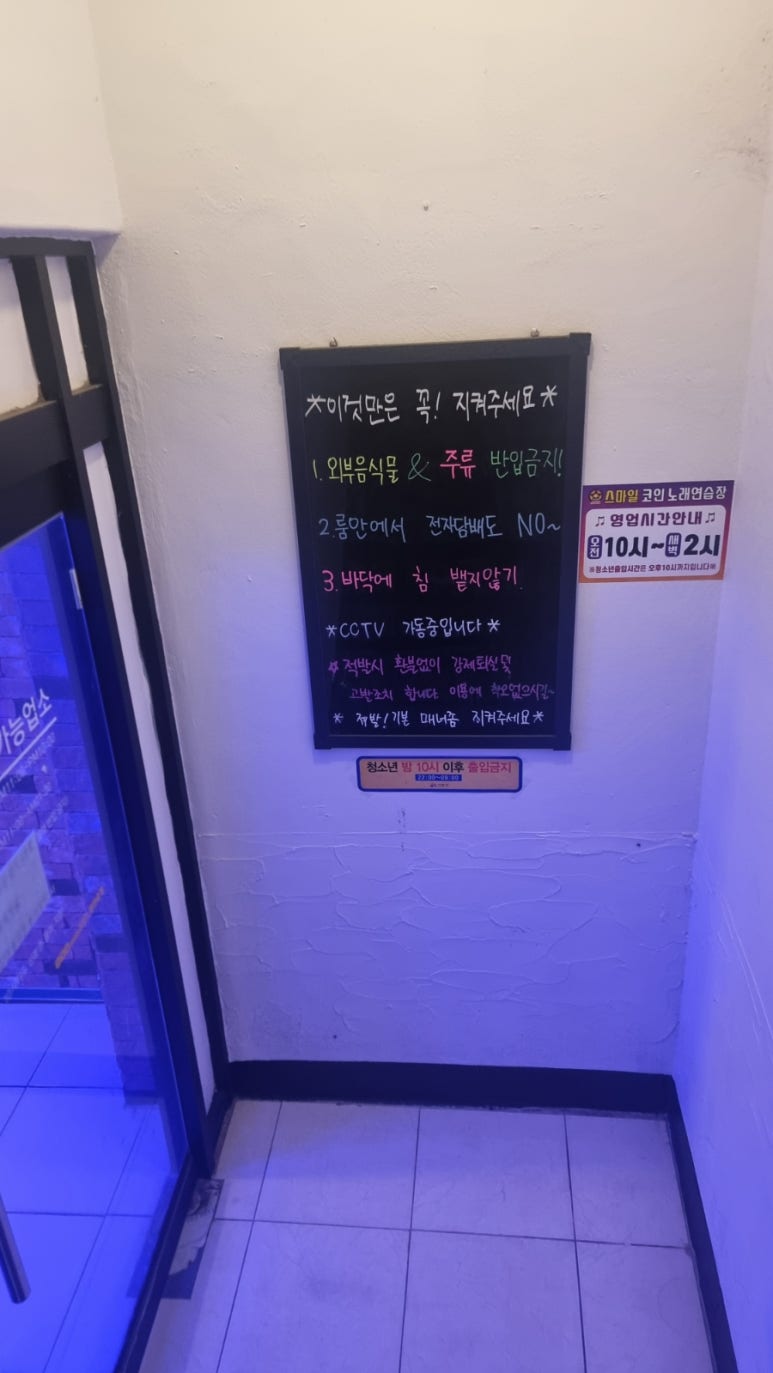 *이것만은 꼭! 지켜주세요*
1. 외부음식물 & 주류 반입금지!
2. 룸안에서 전자담배도 NO~
3. 바닥에 침 뱉지않기.
*CCTV 가동중입니다*
*적발시 환불없이 강제퇴실 및
고발조치 합니다 이용에 착오없으시길~
* 제발! 기본 매너좀 지켜주세요*
청소년 밤 10시 이후 출입금지
스마일 코인 노래연습장
♫ 영업시간안내 ♫
오전 10시~새벽 2시
※청소년출입시간은 오후10시까지입니다※
가능업소